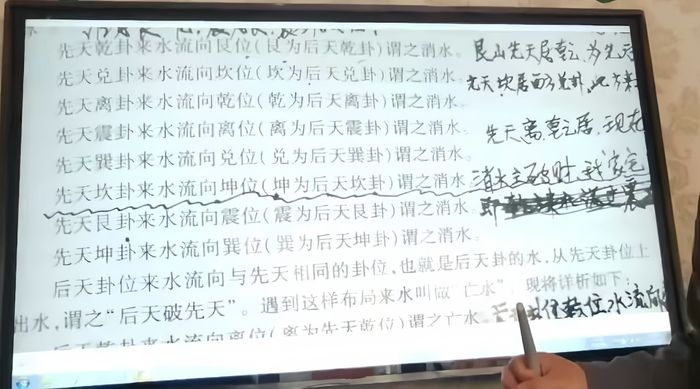 先天乾卦来水流向艮位(艮为后天乾卦)谓之消水。 艮山先天居乾,为先天
先天兑卦来水流向坎位(坎为后天兑卦)谓之消水。 先天坎居西方兑卦,
先天离卦来水流向乾位(乾为后天离卦)谓之消水。
先天震卦来水流向离位(离为后天震卦)谓之消水。 先天离,乾之居,现在
先天巽卦来水流向兑位(兑为后天巽卦)谓之消水。
先天坎卦来水流向坤位(坤为后天坎卦)谓之消水。 消水主破财,
先天艮卦来水流向震位(震为后天艮卦)谓之消水。 即
先天坤卦来水流向巽位(巽为后天坤卦)谓之消水。
后天卦位来水流向与先天相同的卦位,也就是后天卦的水,从先天卦位上
出水,谓之“后天破先天”。遇到这样布局来水叫做“亡水”,现将详析如下:
后天乾卦来水流向离位(离为先天乾位)谓之亡水 乾位水流向